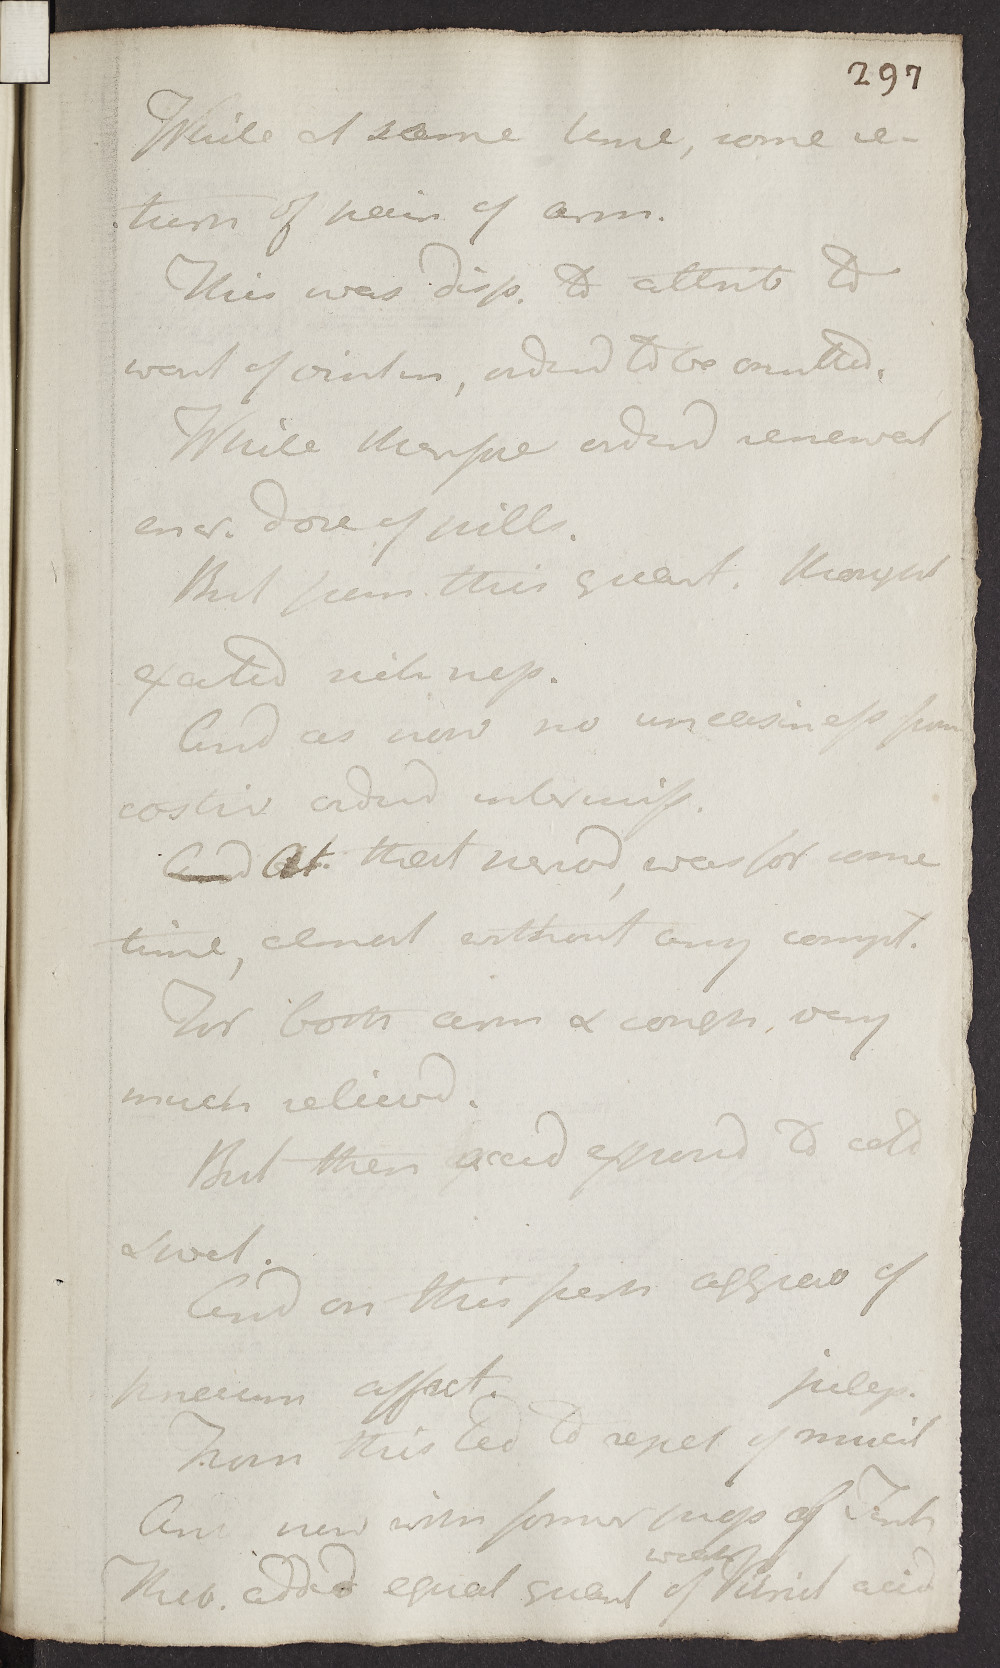 297
While at same time, some re-
turn of pain of arm.
This was disp. to attrib to
want of vinten, orderd to be omitted.
While therefore orderd renewed
ener. dose of pills.
But from this quant. thought
excited sickness.
And as now no uneasiness from
costiv orderd intermiss.
And At that period, was for some
time, almost without any compt.
For both arm & cough, very
much relievd.
But then accid exposed to cold
& wet.
And on this fresh aggrav of
pneum affect.
From this led to repet of mucil julep.
And now with former prop of Tinct
Theb. added equal quant of weak Vitriol acid